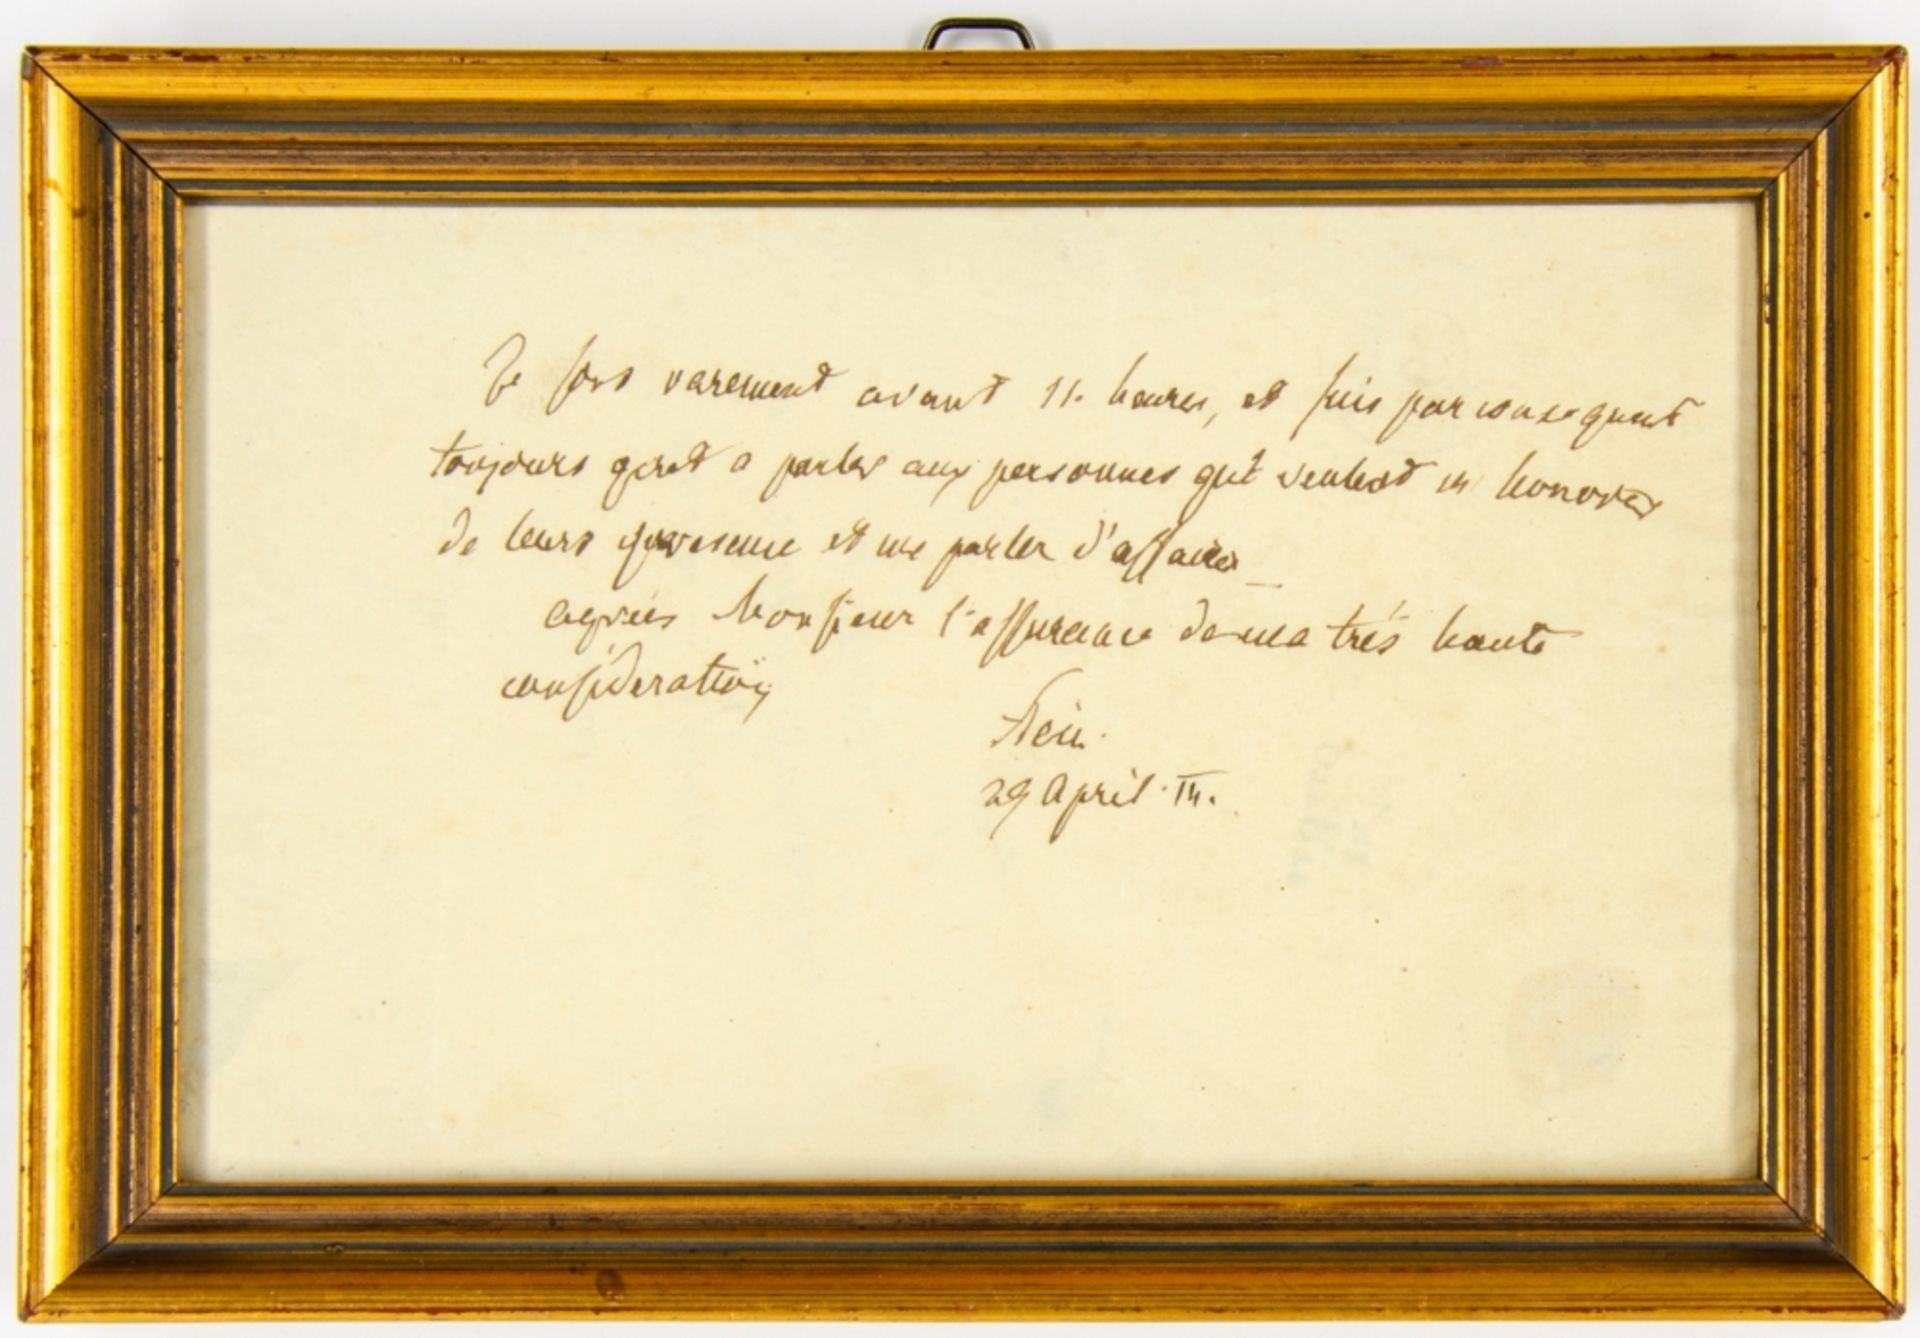 Je sors rarement avant 11. heures, et suis par consequent
toujours pret a parler aux personnes qui veulent m honorer
de leurs presence et me parler d'affaires
agrées Monsieur l'assurance de ma trés haute
consideration
Stein.
29 April